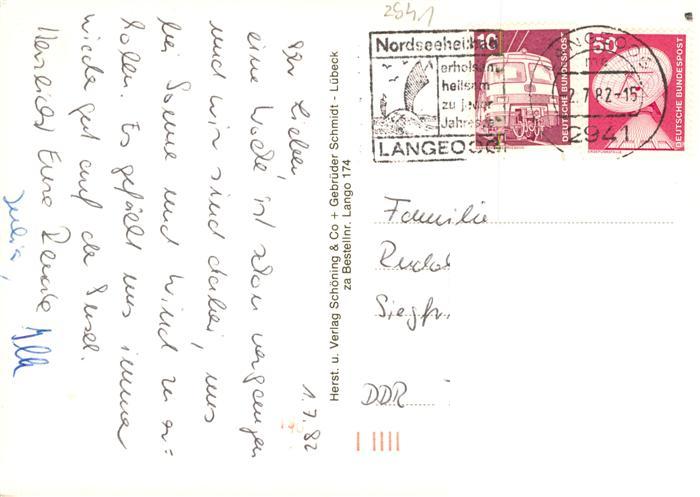 1.7.82
Ihr Lieben,
eine Woche ist schon vergangen
und wir sind dabei, uns
bei Sonne und Wind zu er=
holen. Es gefällt uns immer
wieder gut auf der Insel.
Herzlichst Eure Renate
Julia,
Herst. u. Verlag Schöning & Co + Gebrüder Schmidt - Lübeck
za Bestellnr. Lango 174
2941
Nordseeheilbad
erholsam
heilsam
zu jeder
Jahreszeit
LANGEOOG
10
DEUTSCHE BUNDESPOST
50
DEUTSCHE BUNDESPOST
2.7.82-15
2941
Familie
Rudol
Siegfr.
DDR